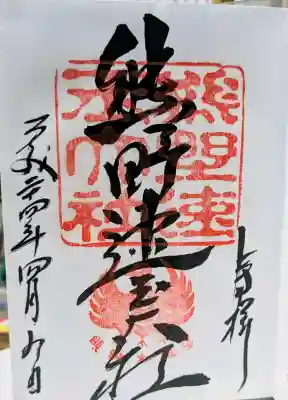 奉拝
熊野速玉大社
平成二十四年四月九日
熊野速玉大社